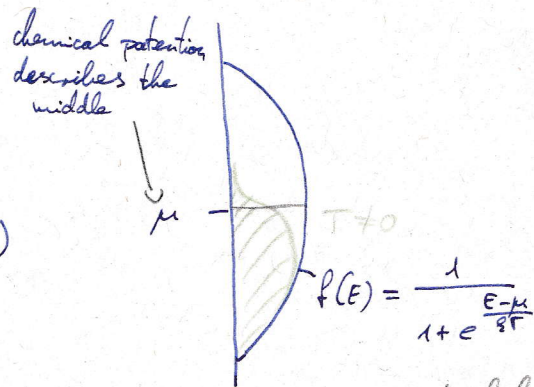 chemical potention
describes the
middle
μ
T ≠ 0
f(E) = 1 / (1 + e^((E-μ)/(kT)))